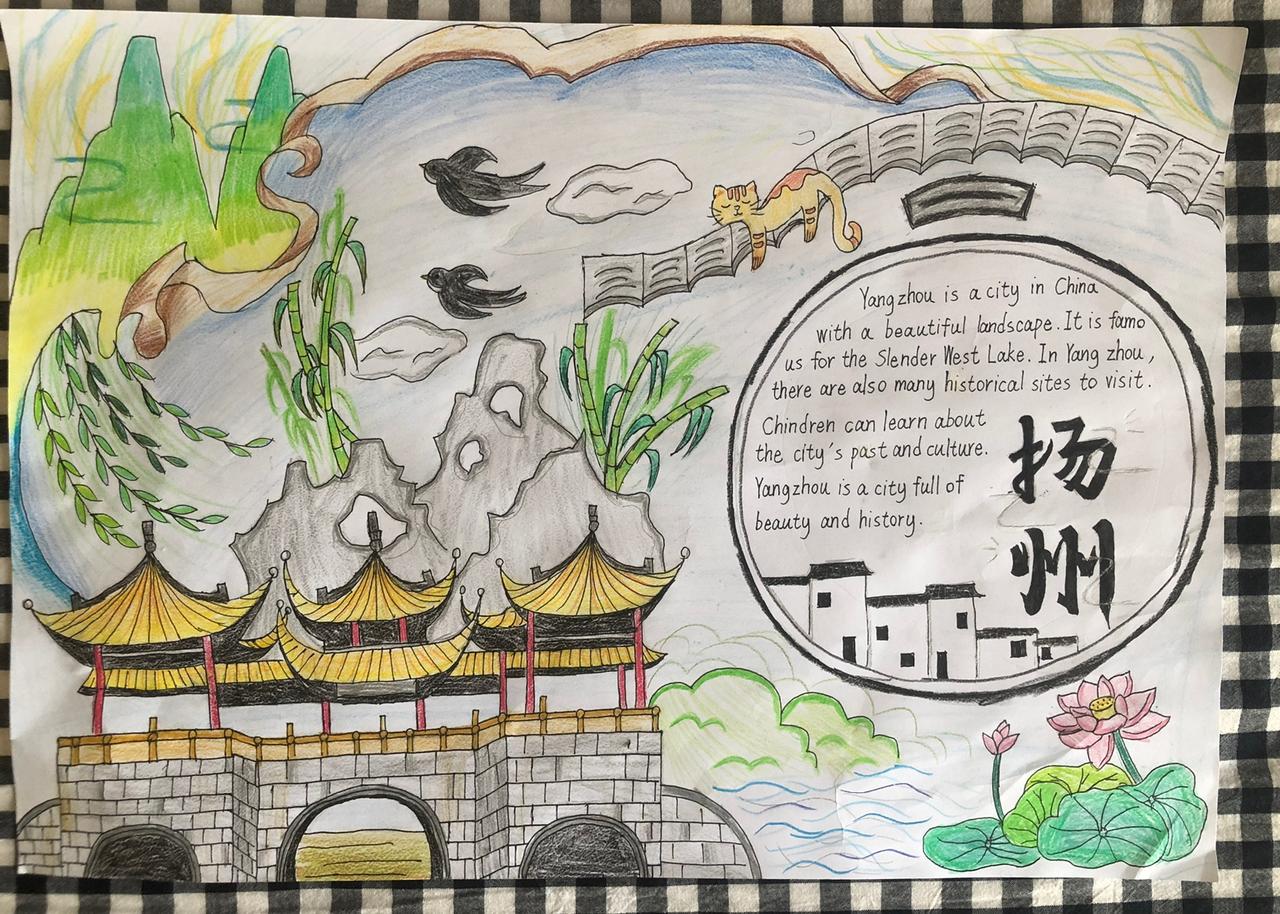 Yangzhou is a city in China
with a beautiful landscape. It is famo
us for the Slender West Lake. In Yang zhou,
there are also many historical sites to visit.
Chindren can learn about
the city's past and culture.
Yangzhou is a city full of
beauty and history.
扬
州